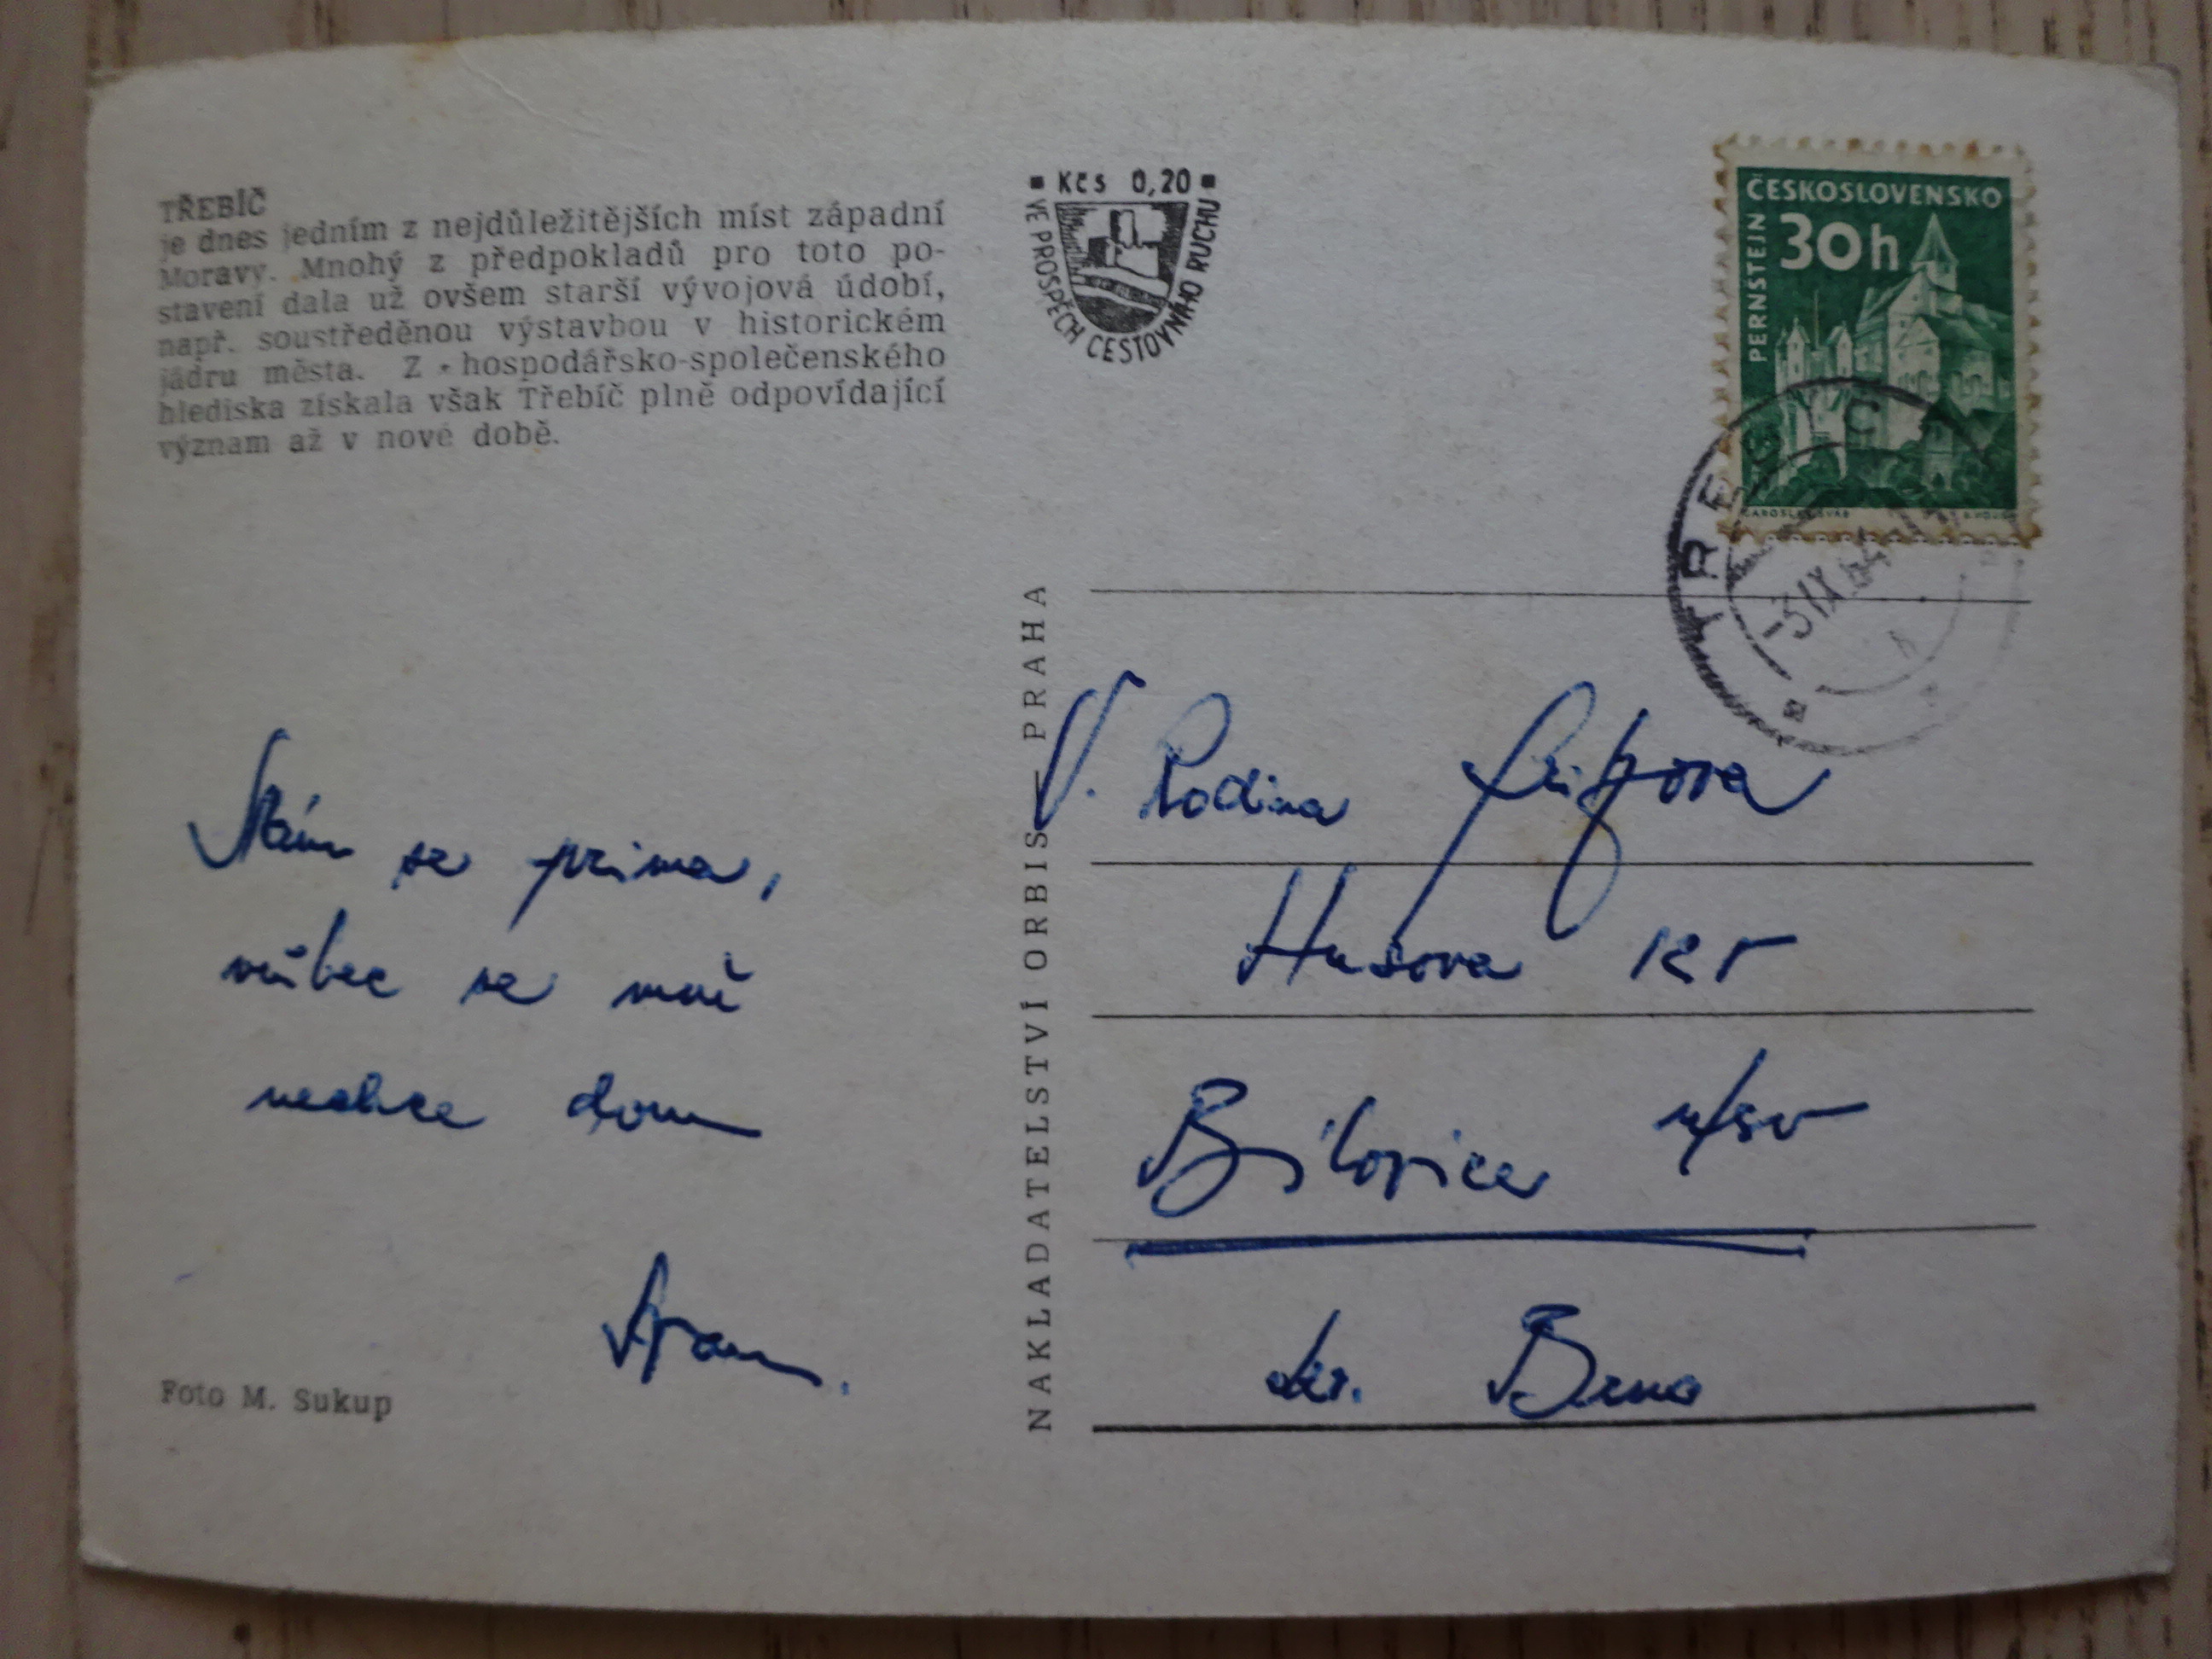 TŘEBÍČ
je dnes jedním z nejdůležitějších míst západní
Moravy. Mnohý z předpokladů pro toto po-
stavení dala už ovšem starší vývojová údobí,
např. soustředěnou výstavbou v historickém
jádru města. Z hospodářsko-společenského
hlediska získala však Třebíč plně odpovídající
význam až v nové době.
Kčs 0,20
VE PROSPĚCH CESTOVNÍHO RUCHU
ČESKOSLOVENSKO
30h
PERNŠTEJN
JAROSLAV ŠVÁB
TŘEBÍČ
-3.IX.64
Mám se prima,
vůbec se mně
nechce dom
Foto M. Sukup
NAKLADATELSTVÍ ORBIS — PRAHA
V. Rodina
Husova
Bílovice n/Sv
okr. Brno